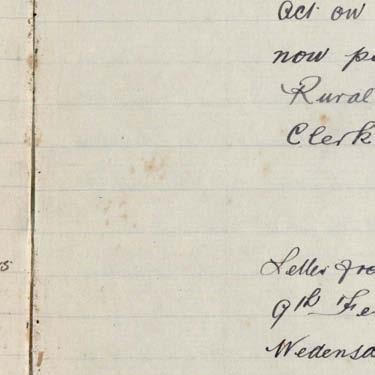 act on
now pa
Rural
Clerk
Letter fro
9th Fe
Wedensda